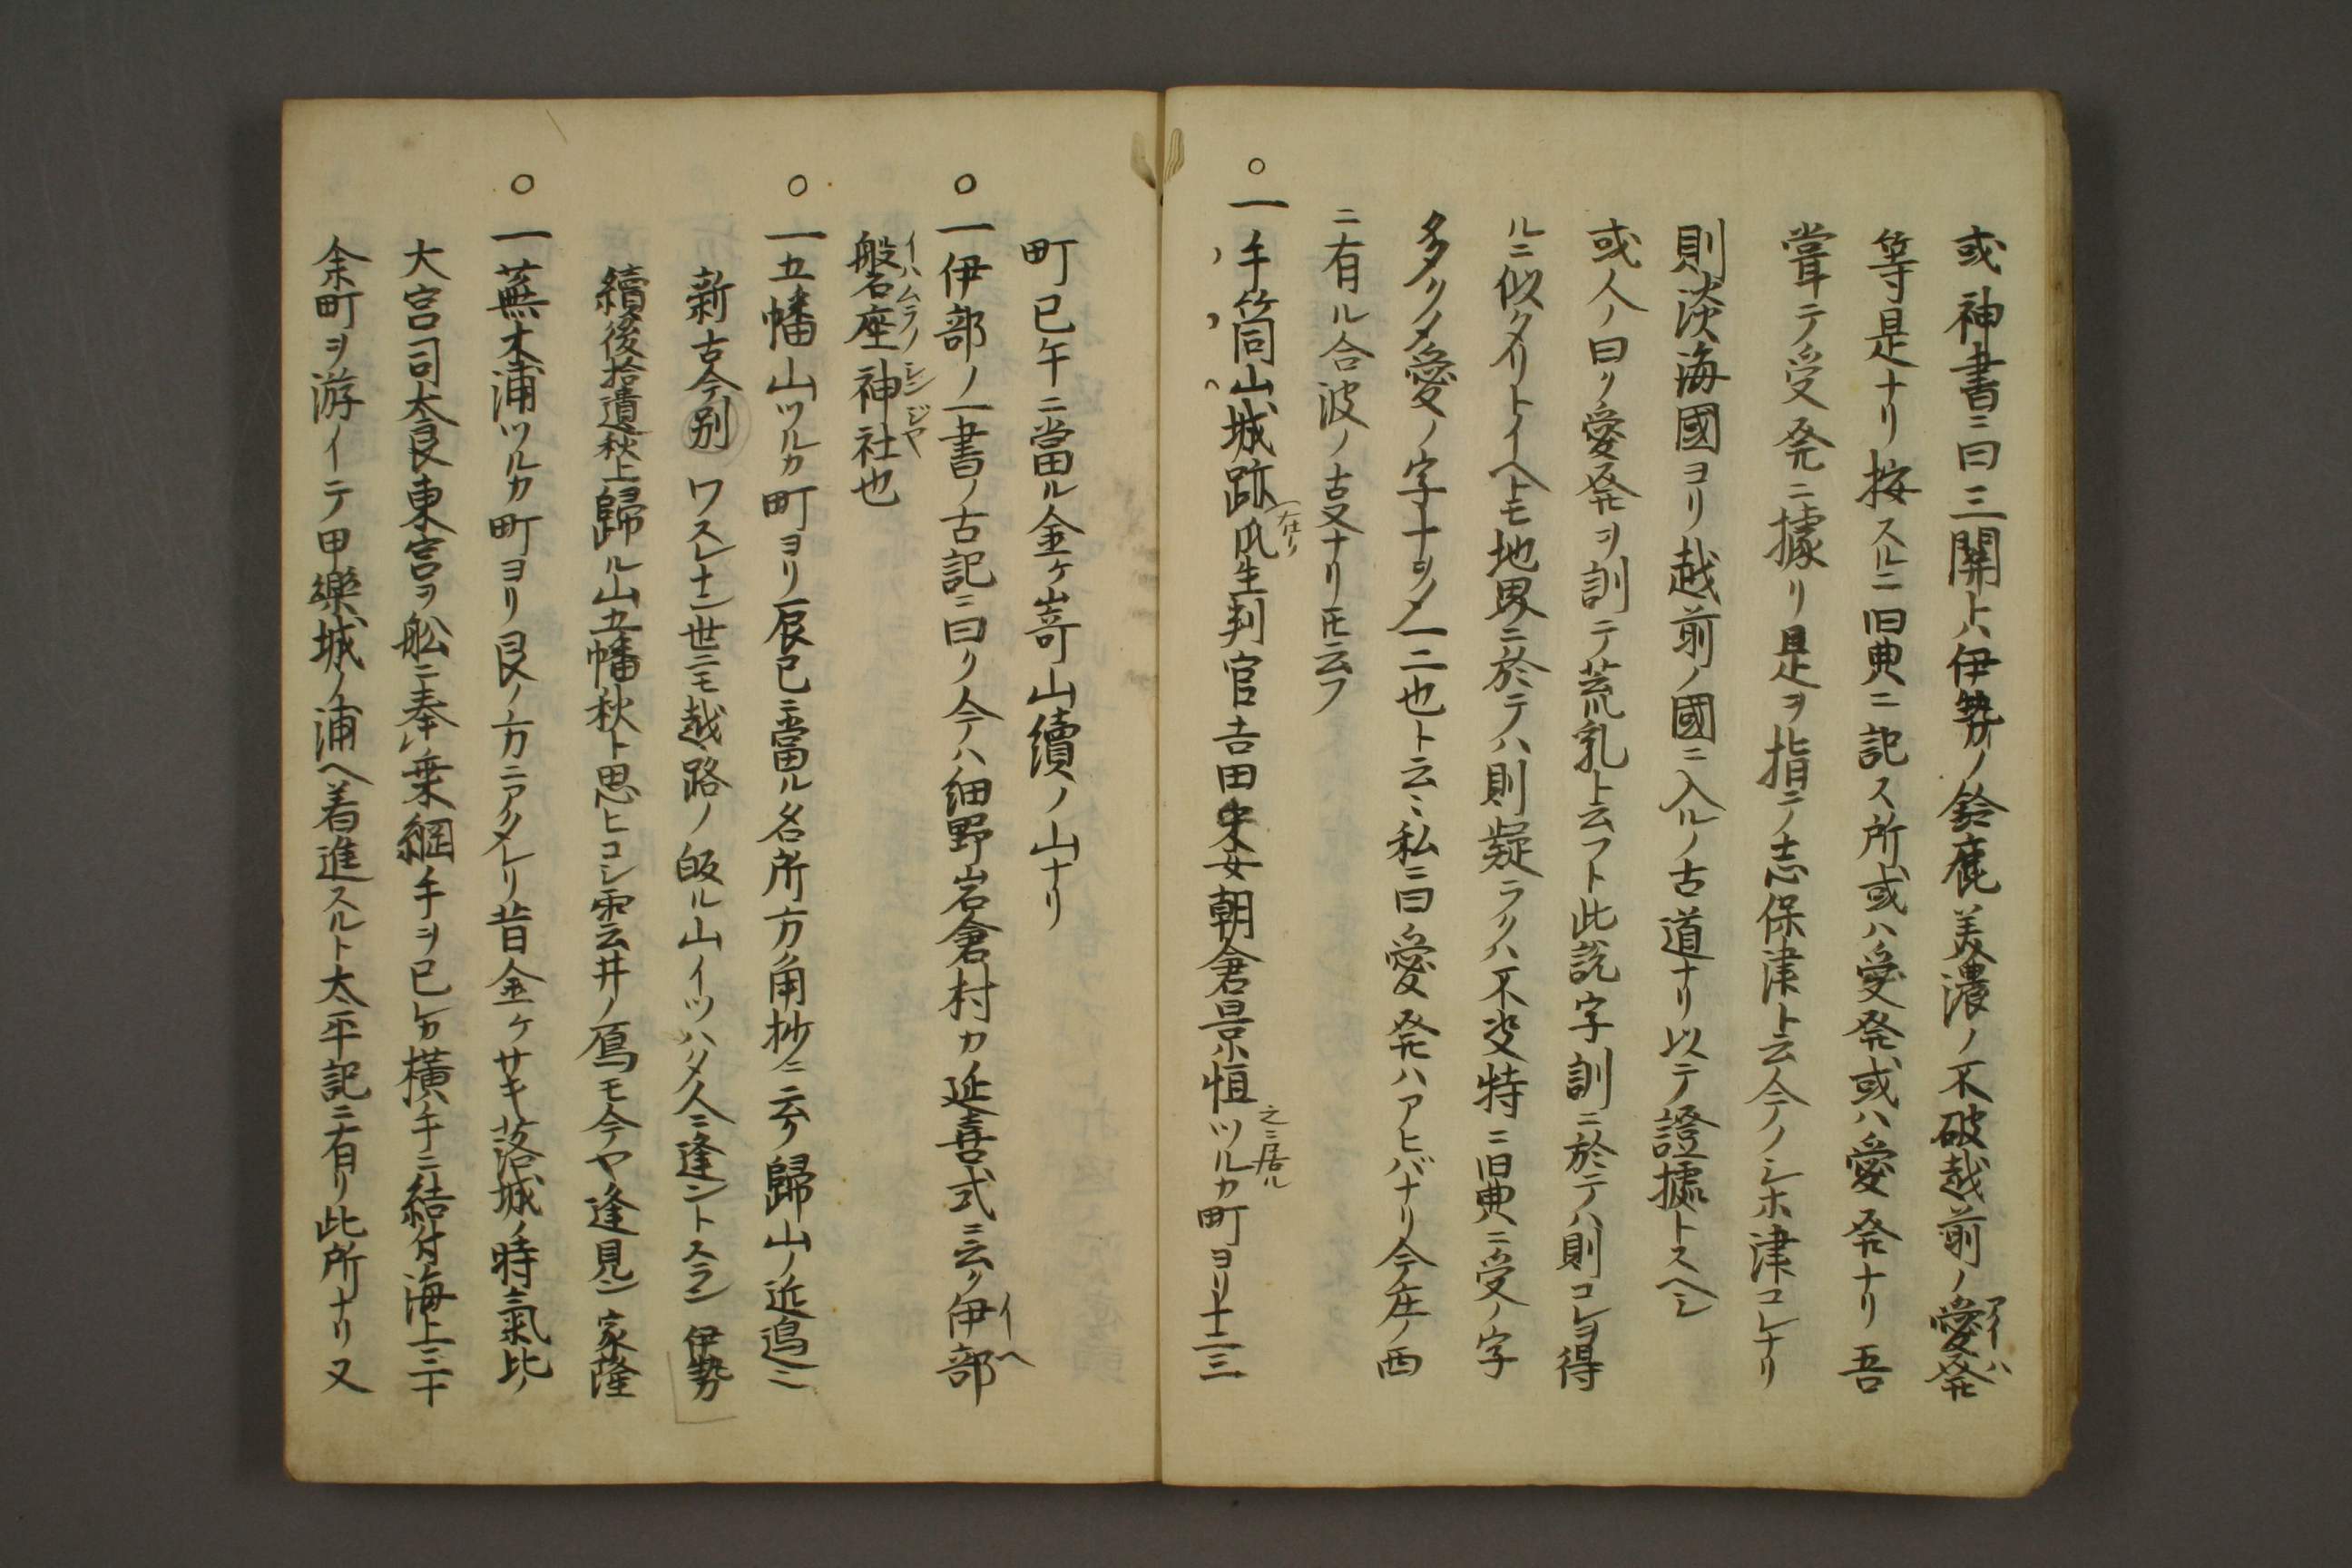 或神書ニ曰三關トハ伊勢ノ鈴鹿美濃ノ不破越前ノ愛発
アイハ
等是ナリ按スルニ旧典ニ記ス所或ハ受発或ハ愛発ナリ吾
甞テ受発ニ據リ是ヲ指テ志保津ト云今ノシホ津コレナリ
則淡海國ヨリ越前ノ國ニ入ルノ古道ナリ以テ證據トスヘシ
或人ノ曰ク愛発ヲ訓テ荒乳ト云フト此説字訓ニ於テハ則コレヲ得
ルニ似タリトイヘトモ地界ニ於テハ則疑ラクハ不安特ニ旧典ニ受ノ字
多クノ愛ノ字十ヲノ一二也ト云ミ私ニ曰愛発ハアヒバナリ今庄ノ西
ニ有ル合波ノ古又ナリ圧云フ
○一手筒山城跡瓜生判官吉田采女朝倉景恒ツルカ町ヨリ十二三
之ニ居ル
町巳午ニ當ル金ケ嵜山續ノ山ナリ
○一伊部ノ一書ノ古記ニ曰ク今ハ細野岩倉村カ延喜式ニ云ク伊部
イヘ
磐座神社也
イハムラノシンジヤ
○一五幡山ツルカ町ヨリ辰巳ニ當ル名所方角抄ニ云ク歸山ノ近邊ニ
新古今別 ワスレナン世ニモ越路ノ皈ル山イツハタ人ニ逢ントスラン 伊勢
續後拾遺秋上歸ル山五幡秋ト思ヒコシ雲井ノ鴈モ今ヤ逢見ン 家隆
○一蕪木浦ツルカ町ヨリ艮ノ方ニアタレリ昔金ケサキ落城ノ時氣比ノ
大宮司太良東宮ヲ舩ニ奉乗綱手ヲ己レカ横手ニ結付海上三十
余町ヲ游イテ甲樂城ノ浦ヘ着進スルト太平記ニ有リ此所ナリ又